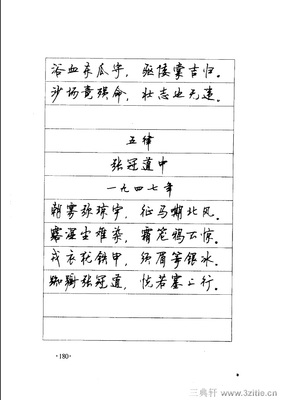 浴血东瓜守，驱倭棠吉归。
沙场竟殒命，壮志也无违。
五律
张冠道中
一九四七年
朝雾弥琼宇，征马嘶北风。
露湿尘难染，霜笼鸦不惊。
戎衣犹铁甲，须眉等银冰。
踟蹰张冠道，恍若塞上行。
·180·
三典轩 www.3zitie.cn